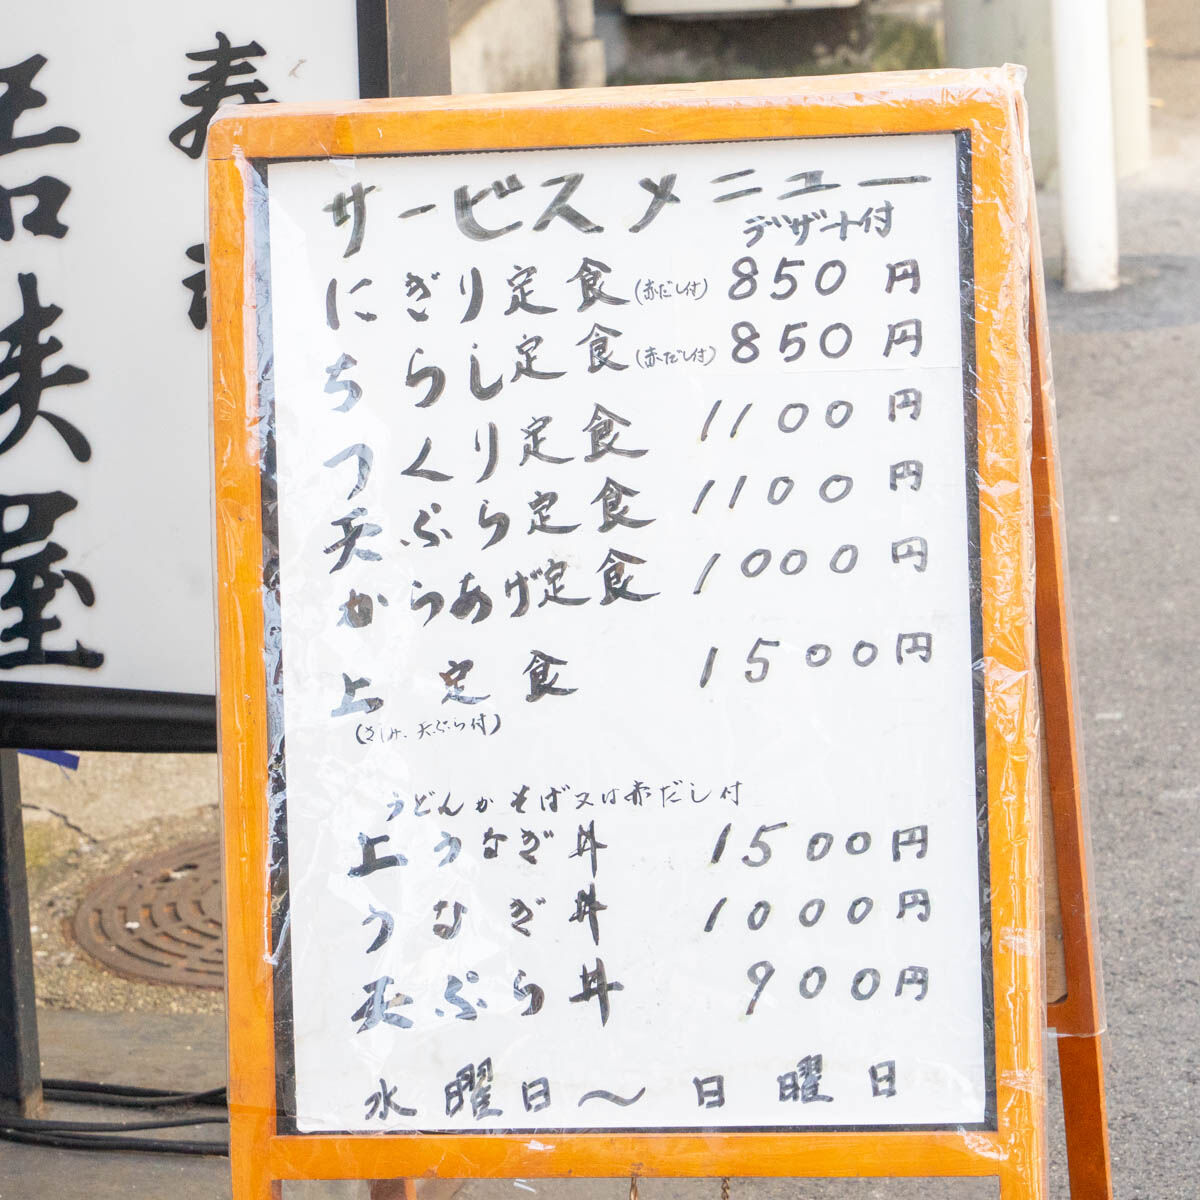 サービスメニュー
デザート付
にぎり定食(赤だし付) 850円
ちらし定食(赤だし付) 850円
つくり定食 1100円
天ぷら定食 1100円
からあげ定食 1000円
上定食 1500円
(さしみ、天ぷら付)
うどんかそば又は赤だし付
上うなぎ丼 1500円
うなぎ丼 1000円
天ぷら丼 900円
水曜日〜日曜日
寿
味屋